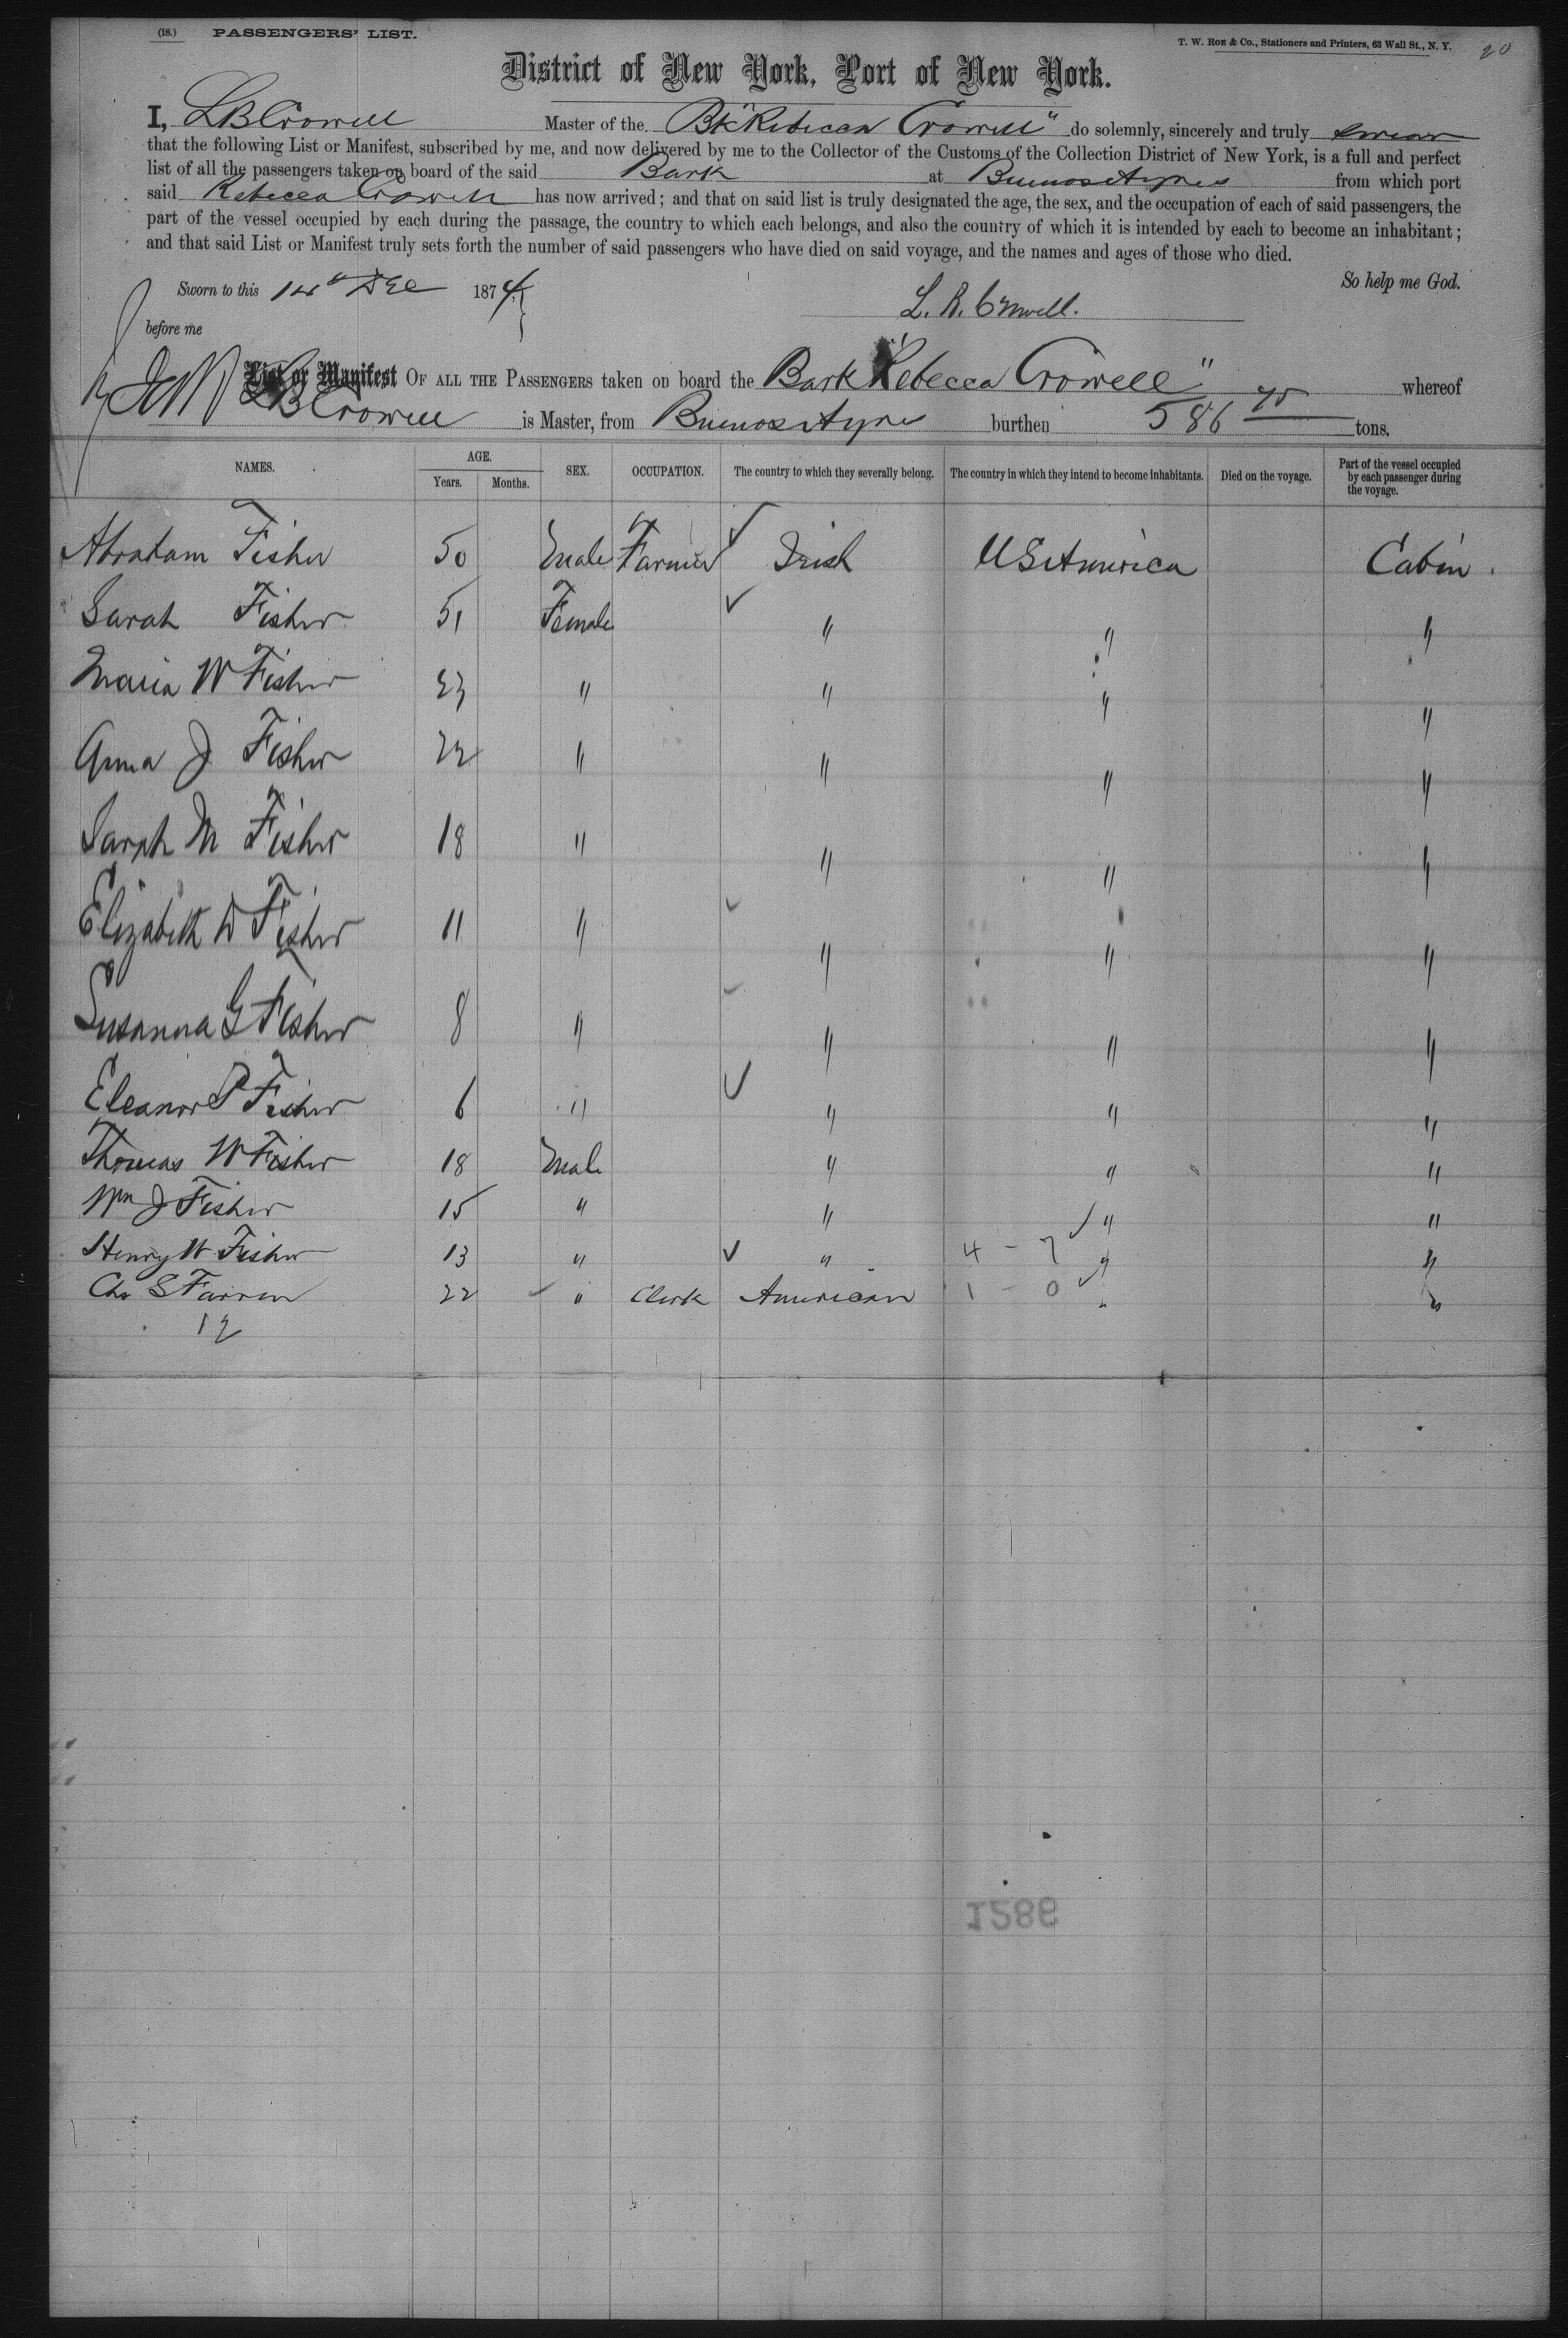 (18.) PASSENGERS' LIST.
T. W. Roe & Co., Stationers and Printers, 63 Wall St., N. Y. 20
District of New York, Port of New York.
I, L B Crowell Master of the Bk "Rebecca Crowell" do solemnly, sincerely and truly swear
that the following List or Manifest, subscribed by me, and now delivered by me to the Collector of the Customs of the Collection District of New York, is a full and perfect
list of all the passengers taken on board of the said Bark at Buenos Ayres from which port
said Rebecca Crowell has now arrived; and that on said list is truly designated the age, the sex, and the occupation of each of said passengers, the
part of the vessel occupied by each during the passage, the country to which each belongs, and also the country of which it is intended by each to become an inhabitant;
and that said List or Manifest truly sets forth the number of said passengers who have died on said voyage, and the names and ages of those who died.
Sworn to this 14th Dec 1874 So help me God.
before me L. B. Crowell.
List or Manifest OF ALL THE PASSENGERS taken on board the Bark "Rebecca Crowell" whereof
L B Crowell is Master, from Buenos Ayres burthen 586 tons.
NAMES. AGE. Years. Months. SEX. OCCUPATION. The country to which they severally belong. The country in which they intend to become inhabitants. Died on the voyage. Part of the vessel occupied by each passenger during the voyage.
Abraham Fisher 50 Male Farmer Irish U S America Cabin
Sarah Fisher 51 Female " " "
Maria W Fisher 23 " " " "
Anna J Fisher 22 " " " "
Sarah M Fisher 18 " " " "
Elizabeth W Fisher 11 " " " "
Susanna G Fisher 8 " " " "
Eleanor P Fisher 6 " " " "
Thomas W Fisher 18 Male " " "
Wm J Fisher 15 " " " "
Henry W Fisher 13 " " 4 - 7 " "
Chs S Farren 22 " Clerk American 1 - 0 " "
12
1586